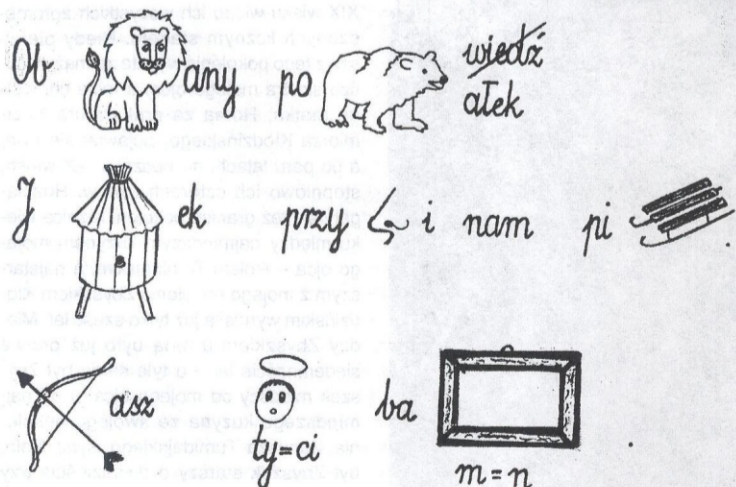 Ob any po wiedź
ałek
J ek przy i nam pi
asz ba
ty=ci
m=n